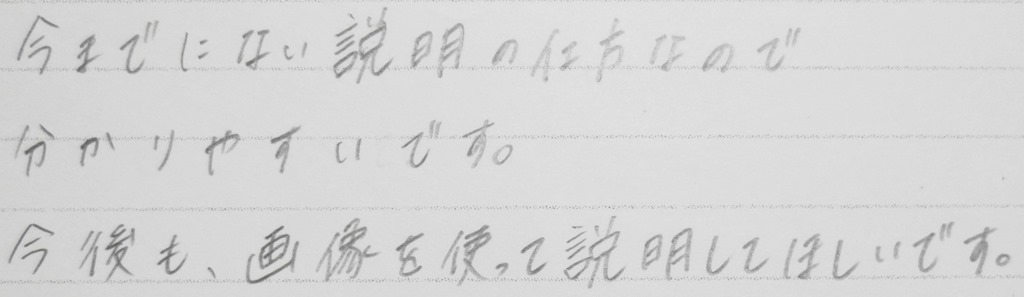 今までにない説明の仕方なので
分かりやすいです。
今後も、画像を使って説明してほしいです。